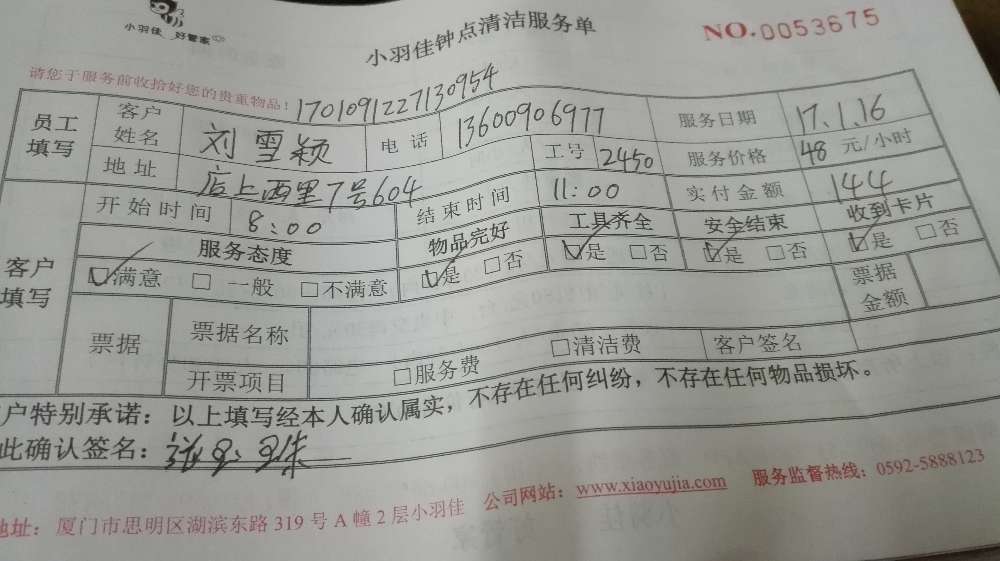 小羽佳 好管家
小羽佳钟点清洁服务单
NO.0053675
请您于服务前收拾好您的贵重物品！
1701091227130954
员工填写
客户姓名 刘雪颖 电话 13600906977 服务日期 17.1.16
地址 店上西里7号604 工号 2450 服务价格 48 元/小时
客户填写
开始时间 8:00 结束时间 11:00 实付金额 144
服务态度 物品完好 工具齐全 安全结束 收到卡片
☑满意 □一般 □不满意 ☑是 □否 ☑是 □否 ☑是 □否 ☑是 □否
票据 票据名称 票据金额
开票项目 □服务费 □清洁费 客户签名
户特别承诺：以上填写经本人确认属实，不存在任何纠纷，不存在任何物品损坏。
此确认签名：
地址：厦门市思明区湖滨东路319号A幢2层小羽佳 公司网站：www.xiaoyujia.com 服务监督热线：0592-5888123